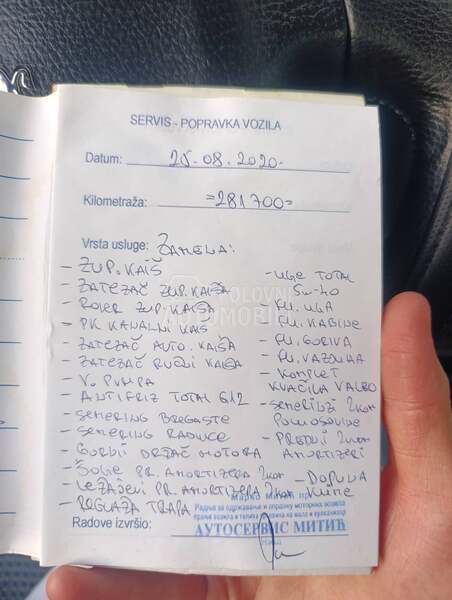 SERVIS - POPRAVKA VOZILA
Datum: 25.08.2020.
Kilometraža: =281700=
Vrsta usluge: ZAMENA:
- ZUP. KAIŠ
- ZATEZAČ ZUP. KAIŠA
- ROLER ZUP. KAIŠA
- PK KANALNI KAIŠ
- ZATEZAČ AUTO. KAIŠA
- ZATEZAČ RUČNI KAIŠA
- V. PUMPA
- ANTIFRIZ TOTAL G12
- SEMERING BREGASTE
- SEMERING RADILICE
- GORNJI DRŽAČ MOTORA
- ŠOLJE PR. AMORTIZERA 2kom
- LEŽAJEVI PR. AMORTIZERA 2kom
- REGLAŽA TRAPA
- ULJE TOTAL
5w-40
- FIL. ULJA
- FIL. KABINE
- FIL. GORIVA
- FIL. VAZDUHA
- KOMPLET
KVAČILA VALEO
- SEMERINZI 2kom
POLUOSOVINE
- PREDNJI 2kom
AMORTIZERI
- DOPUNA
KLIME
POLOVNI
AUTOMOBILI
Радња за одржавање и оправку моторних возила
АУТОСЕРВИС МИТИЋ
Radove izvršio: